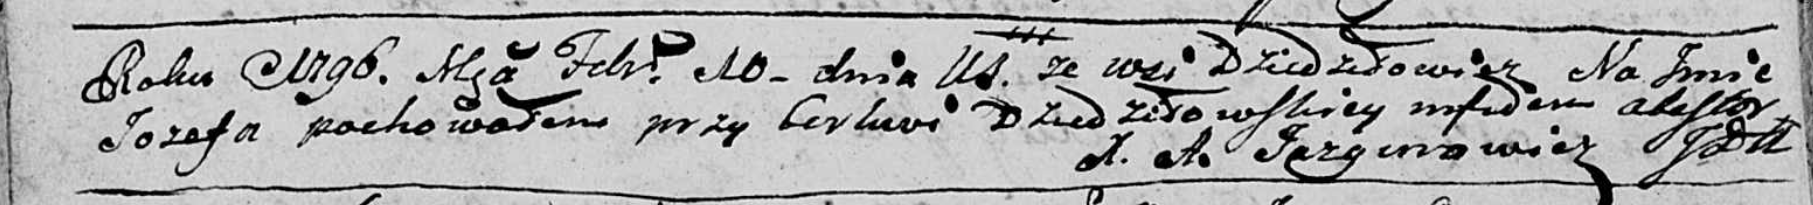 Roku 1796. Mca Febr. 10 dnia US. ze wsi Dziedziłowicz Na Imie
Jozefa pochowałem przy Cerkwi Dziedziłowskiey in fidem attestor
X. A. Jazgunowicz